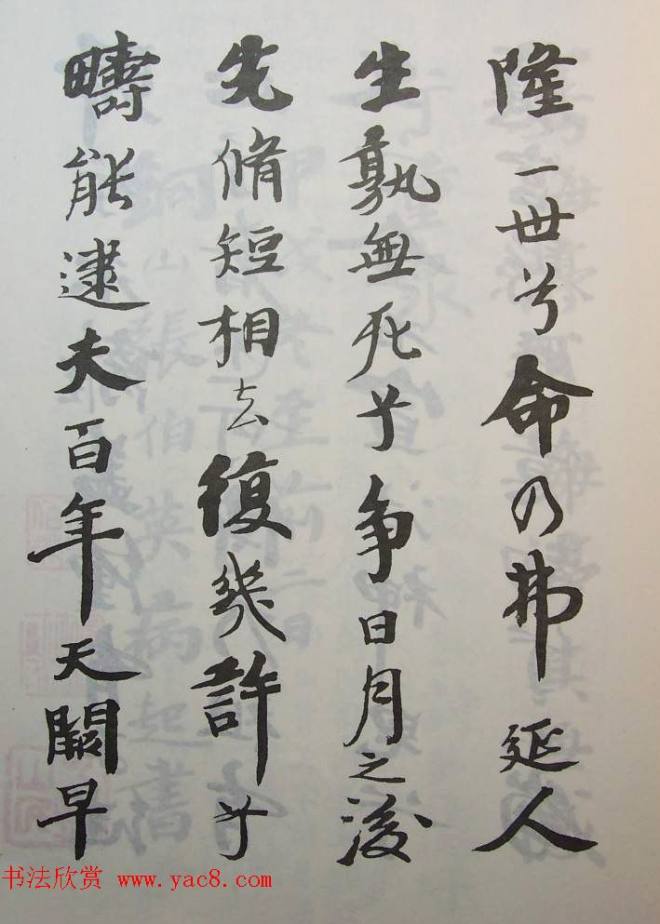 隆一世兮命乃弗延人
生孰無死乎争日月之後
先脩短相去復幾許乎
疇能逮夫百年天闕早
书法欣赏 www.yac8.com